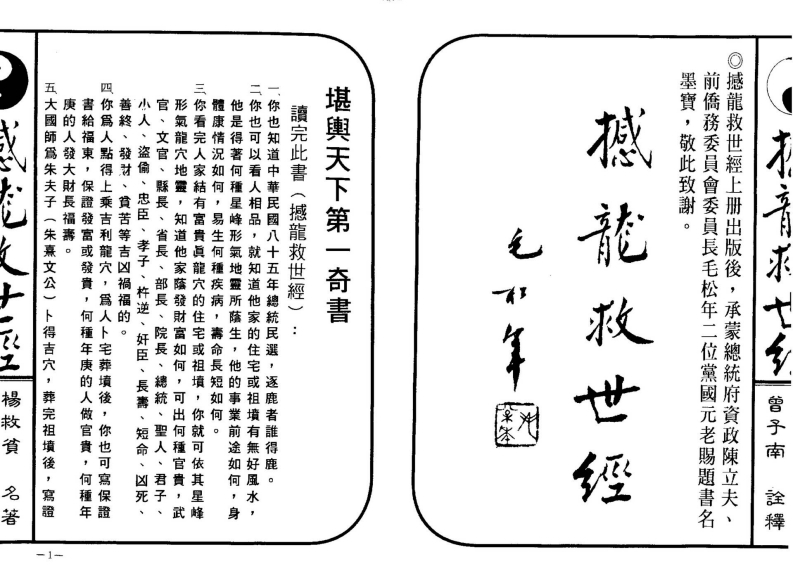 撼龍救世經
曾子南 詮釋
◎撼龍救世經上册出版後，承蒙總統府資政陳立夫、
前僑務委員會委員長毛松年二位黨國元老賜題書名
墨寶，敬此致謝。
撼龍救世經
毛松年
堪輿天下第一奇書
讀完此書（撼龍救世經）：
一、你也知道中華民國八十五年總統民選，逐鹿者誰得鹿。
二、你也可以看人相品，就知道他家的住宅或祖墳有無好風水，
他是得著何種星峰形氣地靈所蔭生，他的事業前途如何，身
體康情況如何，易生何種疾病，壽命長短如何。
三、你看完人家結有富貴眞龍穴的住宅或祖墳，你就可依其星峰
形氣龍穴地靈，知道他家蔭發財富如何，可出何種官貴，武
官、文官、縣長、省長、部長、院長、總統、聖人、君子、
小人、盜偷、忠臣、孝子、忤逆、奸臣、長壽、短命、凶死、
善終、發財、貧苦等吉凶禍福的。
四、你爲人點得上乘吉利龍穴，爲人卜宅葬墳後，你也可寫保證
書給福東，保證發富或發貴，何種年庚的人做官貴，何種年
庚的人發大財長福壽。
五、大國師爲朱夫子（朱熹文公）卜得吉穴，葬完祖墳後，寫證
撼龍救世經
楊救貧 名著
－1－